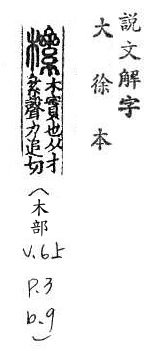 説文解字
大徐本
木實也从木
絫聲力追切
(木部
v.6上
p.3
b.9)